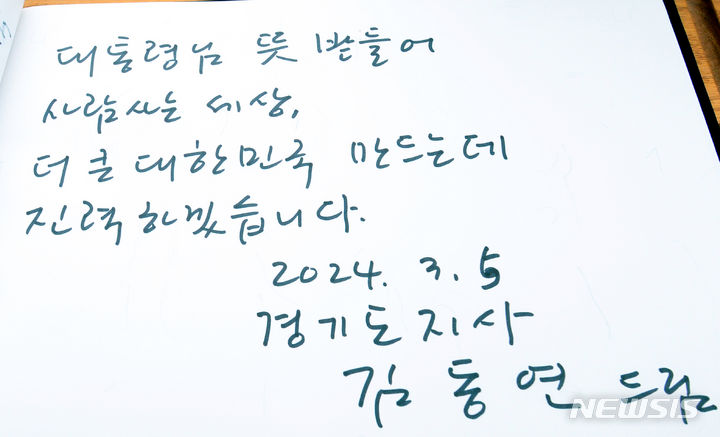 대통령님 뜻 받들어
사람사는 세상,
더 큰 대한민국 만드는데
진력하겠습니다.
2024. 3. 5
경기도지사
김동연 드림
NEWSIS